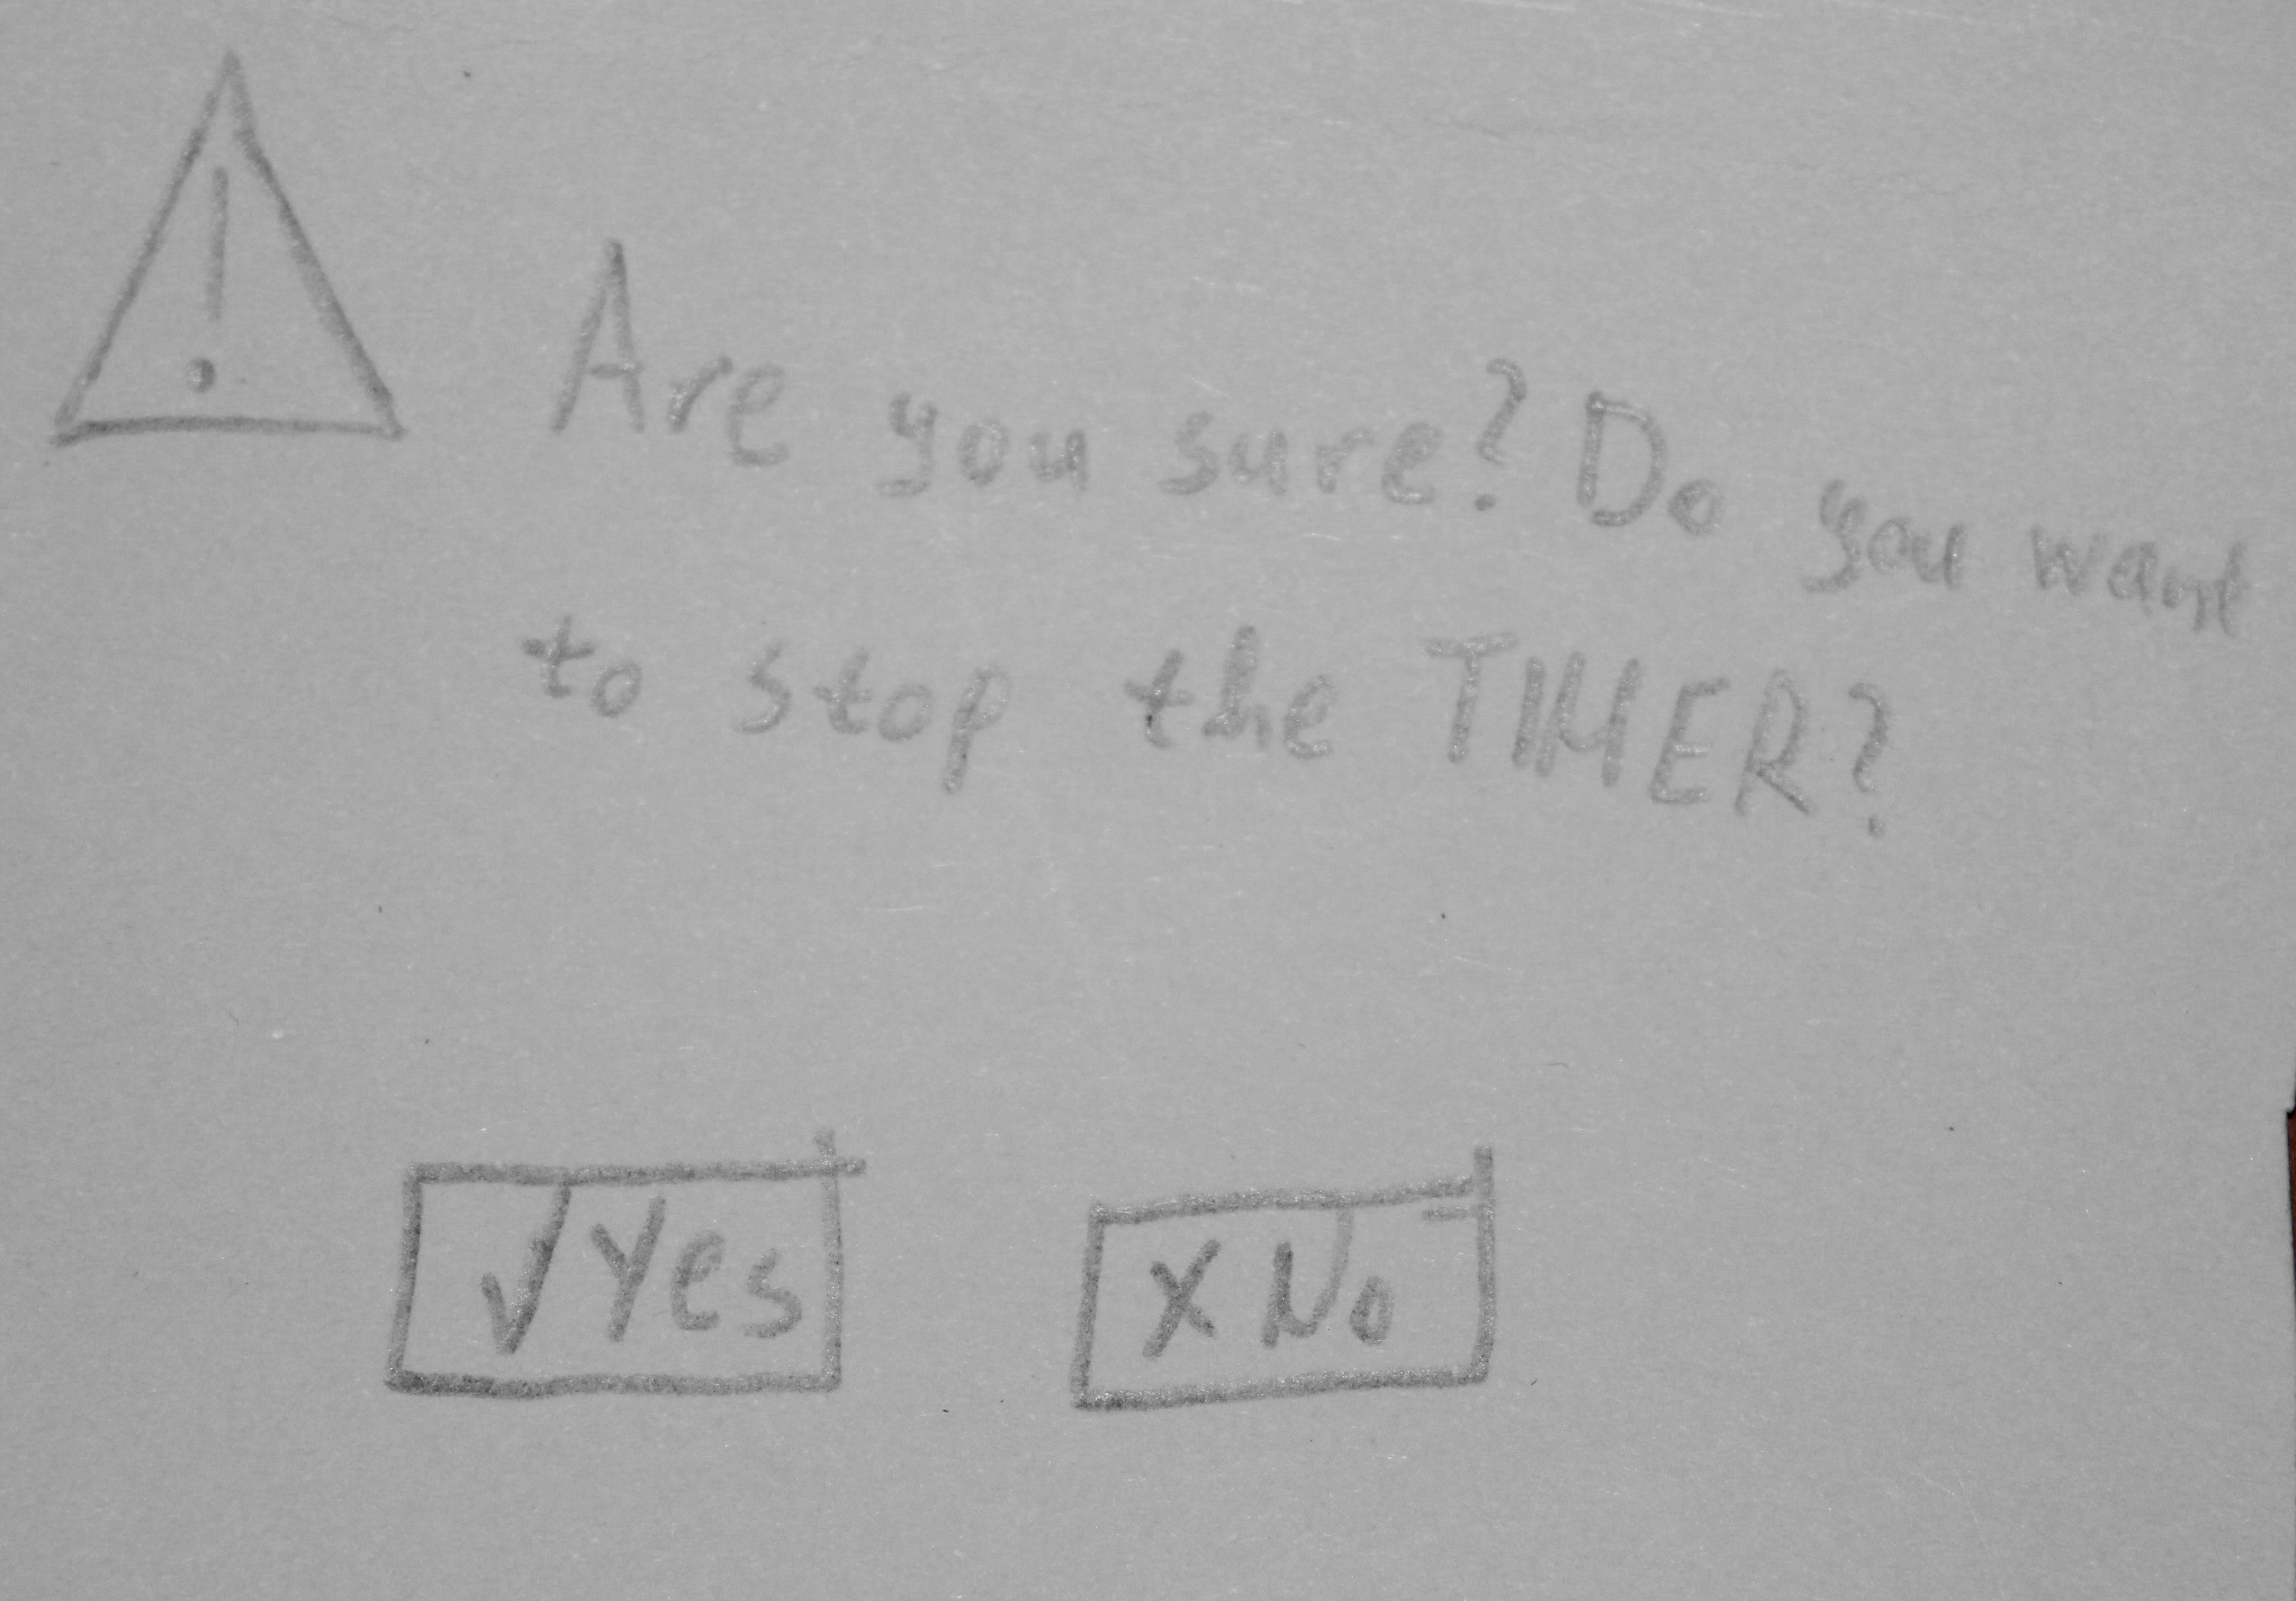 Are you sure? Do you want
to stop the TIMER?
√ Yes
X No